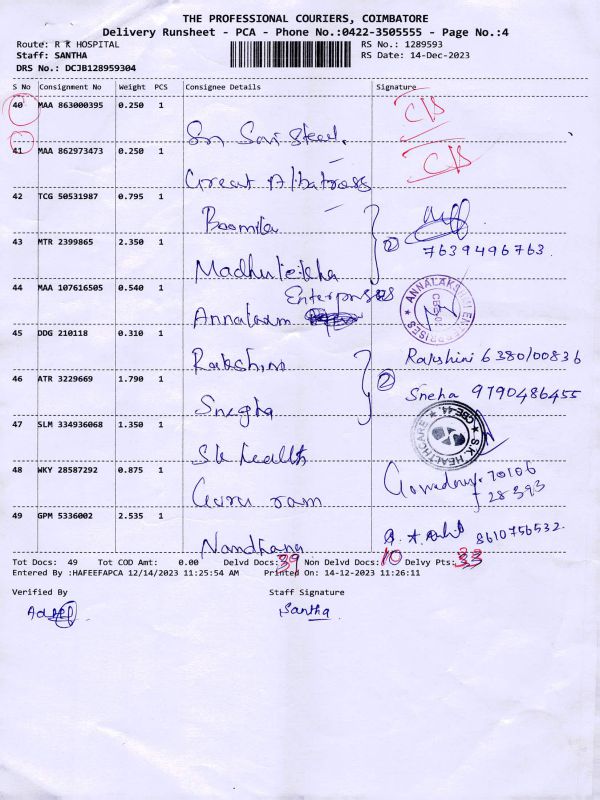 THE PROFESSIONAL COURIERS, COIMBATORE
Delivery Runsheet - PCA - Phone No.:0422-3505555 - Page No.:4
Route: R K HOSPITAL
RS No.: 1289593
Staff: SANTHA
RS Date: 14-Dec-2023
DRS No.: DCJB128959304
S No Consignment No Weight PCS Consignee Details Signature
40 MAA 863000395 0.250 1 C/S
Sri Sai Steel.
41 MAA 862973473 0.250 1 C/S
Great Albatross
42 TCG 50531987 0.795 1
Boomika
7639496763
43 MTR 2399865 2.350 1 2
Madhuleikha
44 MAA 107616505 0.540 1
Enterprises
Annalaxm
ANNALAKSHMI ENTERPRISES
45 DDG 210118 0.310 1
Rakshini
Rakshini 6380100836
46 ATR 3229669 1.790 1 2
Sneha 9790486455
Snegha
47 SLM 334936068 1.350 1
S.K. HEALTHCARE CBE-44
Sk health
48 WKY 28587292 0.875 1
70106
28393
Guru ram
49 GPM 5336002 2.535 1
8610756532
Nandhana
Tot Docs: 49 Tot COD Amt: 0.00 Delvd Docs: 39 Non Delvd Docs: 10 Delvy Pts: 33
Entered By :HAFEEFAPCA 12/14/2023 11:25:54 AM Printed On: 14-12-2023 11:26:11
Verified By Staff Signature
Santha